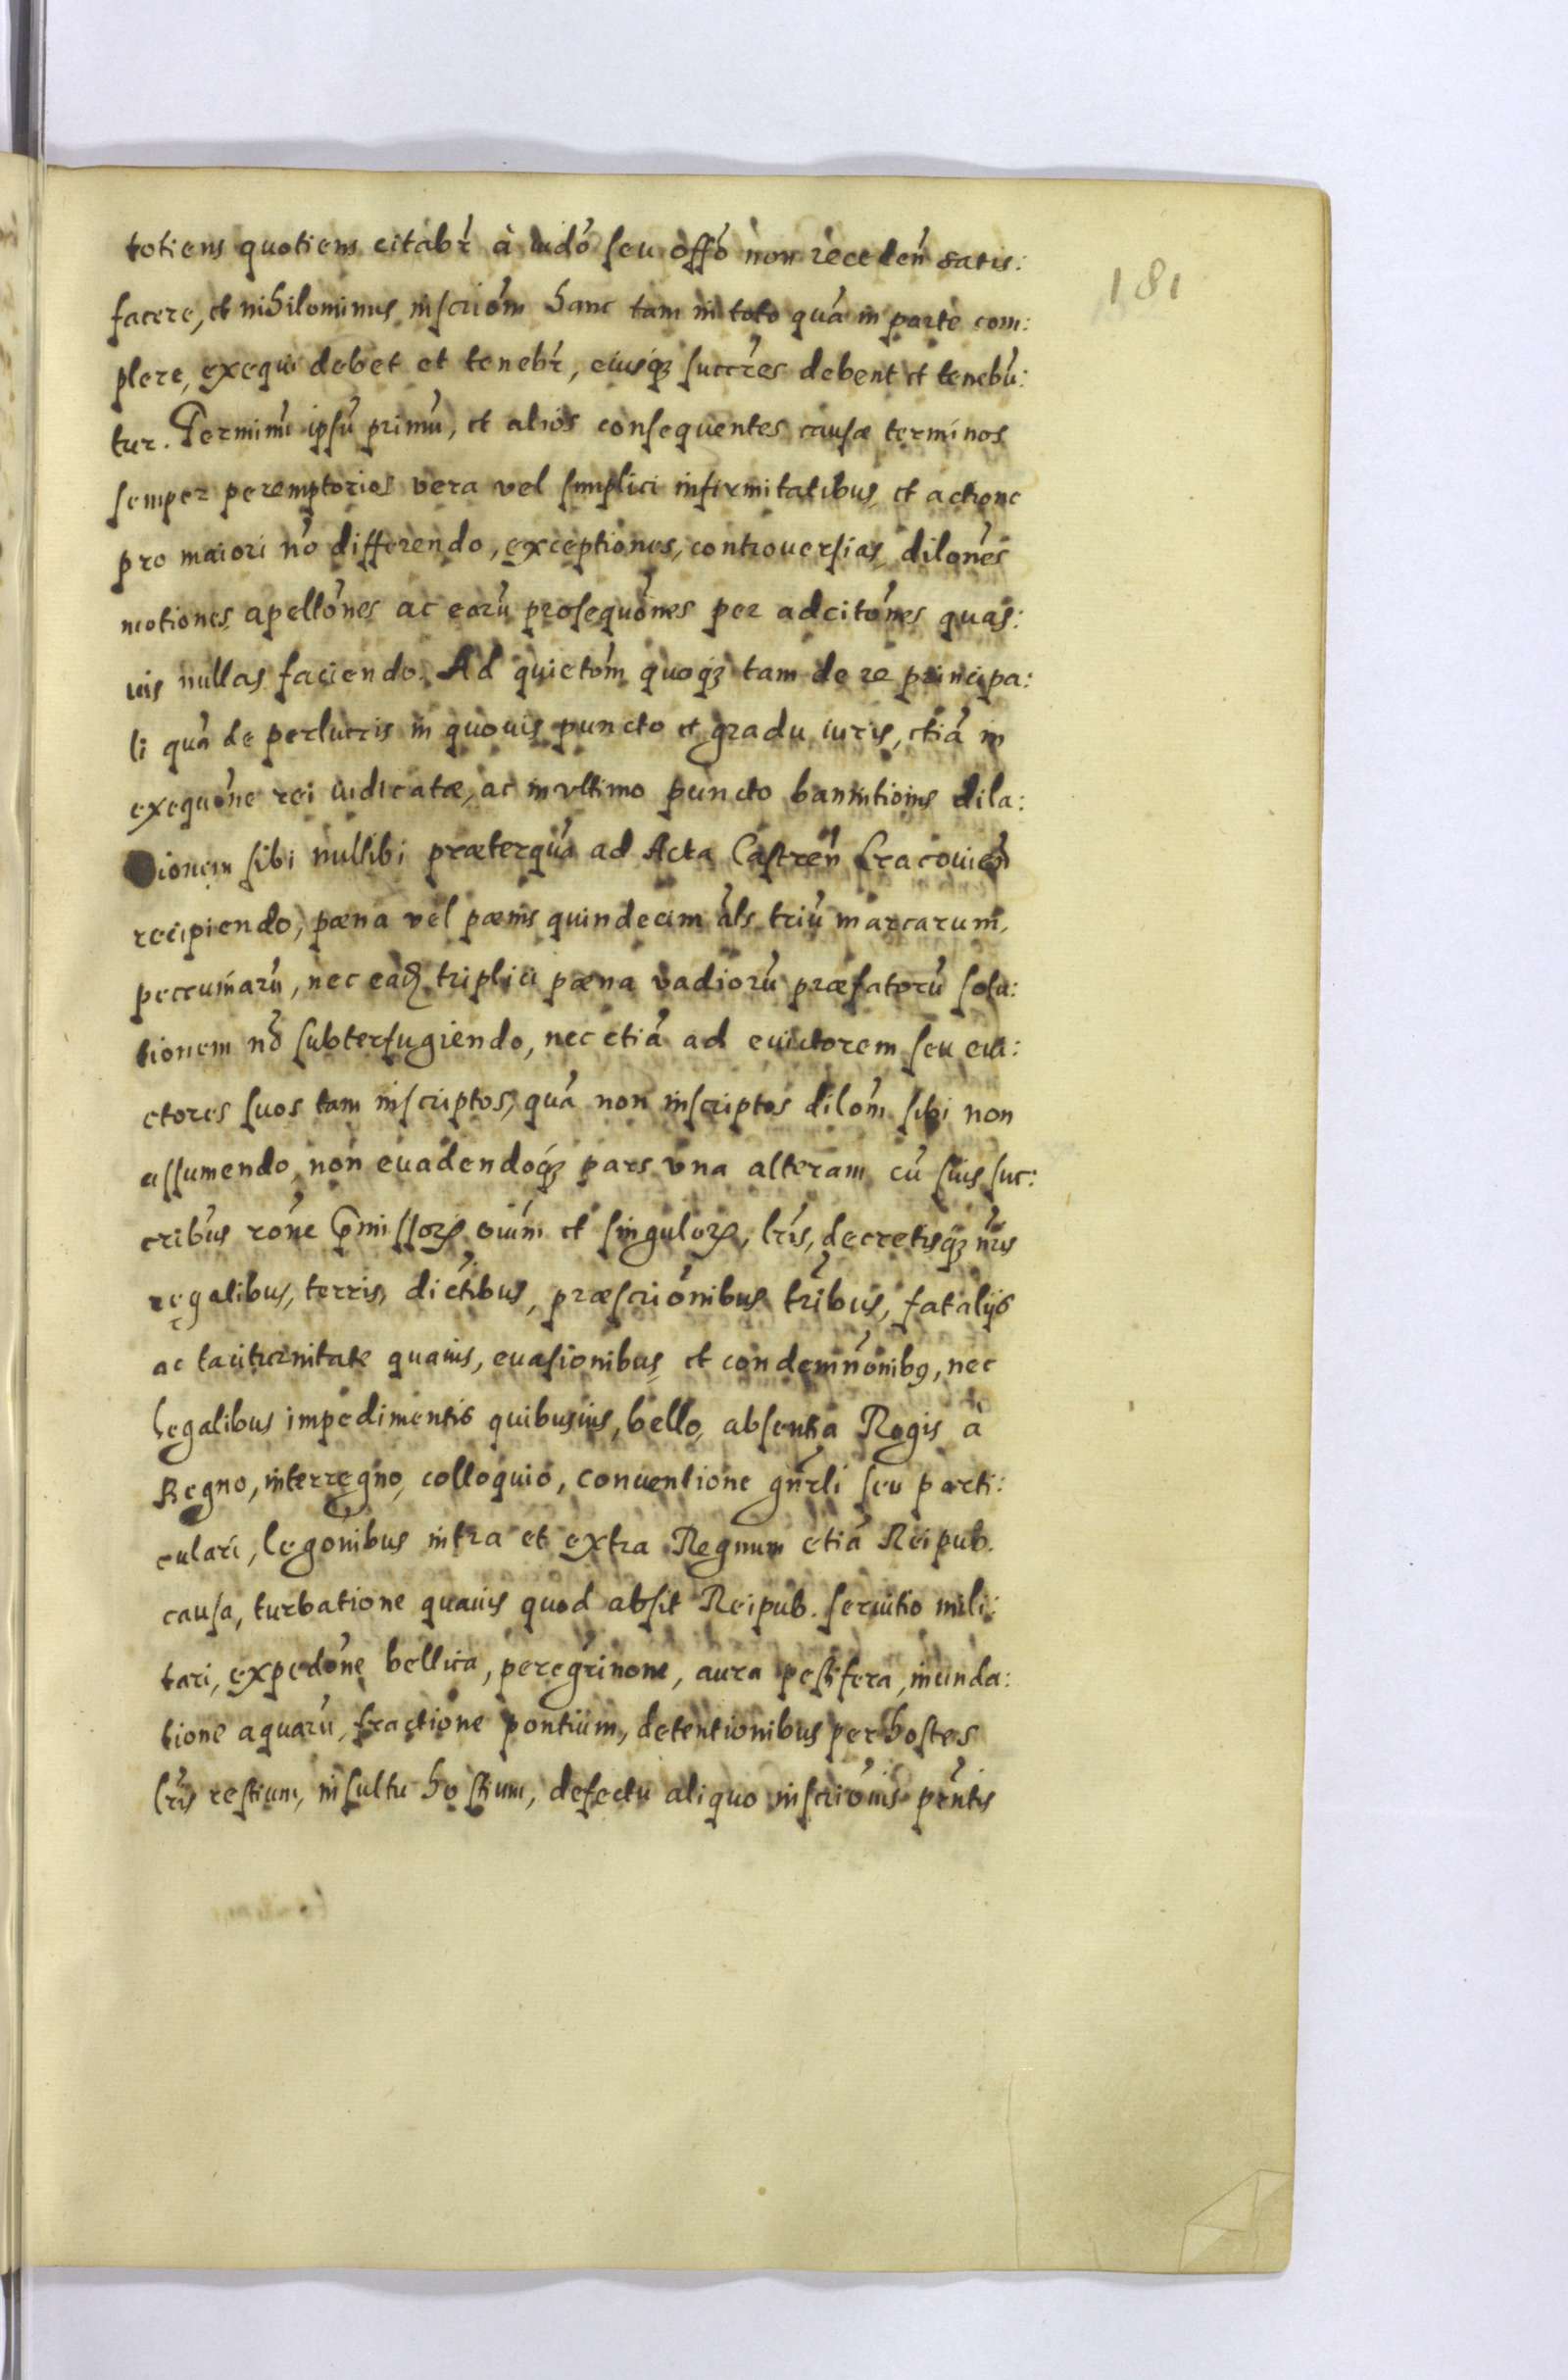 181
totiens quotiens citabr̃ à iudõ seu offõ non receden̄ satis:
facere, et nihilominus inscriõm hanc tam in toto quã in parte com:
plere, exequi debet et tenebr̃, eiusq̃ȝ succr̃es debent et tenebũ:
tur. Terminũ ipsũ primũ, et alios consequentes causæ terminos
semper peremptorios vera vel simplici infirmitatibus, et actione
pro maiori nõ differendo, exceptiones, controuersias, dilões
motiones, apellões ac earũ prosequões per adcitões quas:
uis nullas faciendo. Ad quietõm quoq̃ȝ tam de re principa:
li quã de perlucris in quouis puncto et gradu iuris, etiã in
exequõne rei iudicatæ, ac in vltimo puncto bannitionis dila:
tionem sibi nullibi præterquã ad Acta Castren̄ Cracouien̄
recipiendo, pæna vel pænis quindecim als triũ marcarum,
peccuniarũ, nec eaɖ triplici pæna vadiorũ præfatorũ solu:
tionem nõ subterfugiendo, nec etiã ad euictorem seu eui:
ctores suos tam inscriptos, quã non inscriptos dilõm sibi non
assumendo, non euadendoq̃ȝ pars vna alteram cũ suis suc:
cribũs rõne p̄missorꝝ oĩum et singulorꝝ, lr̃is, decretisq̃ȝ nr̃is
regalibus, terris, dictibus, præscriõnibus tribus, fatalijs
ac taciturnitate quauis, euasionibus, et condemnõnibꝰ, nec
legalibus impedimentis quibusuis, bello, absentia Regis à
Regno, interregno, colloquio, conuentione gñrli seu parti:
culari, legõnibus intra et extra Regnum etiã Reipub.
causa, turbatione quauis quod absit Reipub. seruitio mili:
tari, expedõne bellica, peregrinone, aura pestifera, inunda:
tione aquarũ, fractione pontium, detentionibus per hostes
lr̃is restium, insultu hostium, defectu aliquo inscriõnis pñtis